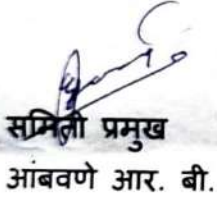 समिती प्रमुख
आंबवणे आर. बी.